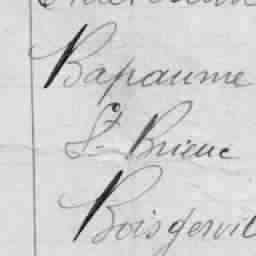 Bapaume
St Brieuc
Boisgervil